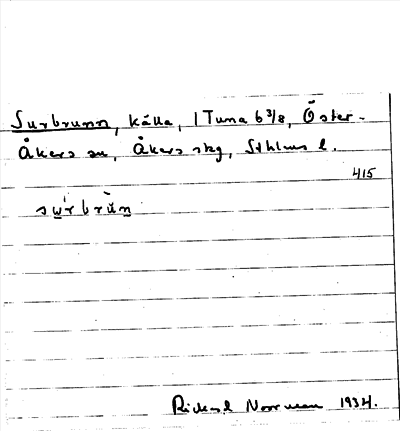 Surbrunn, källa, 1 Tuna 6 3/8, Öster-
Åkers sn, Åkers skg, Sthlms l.
415
sẉ́rbrùṇ
Rickard Norrman 1934.